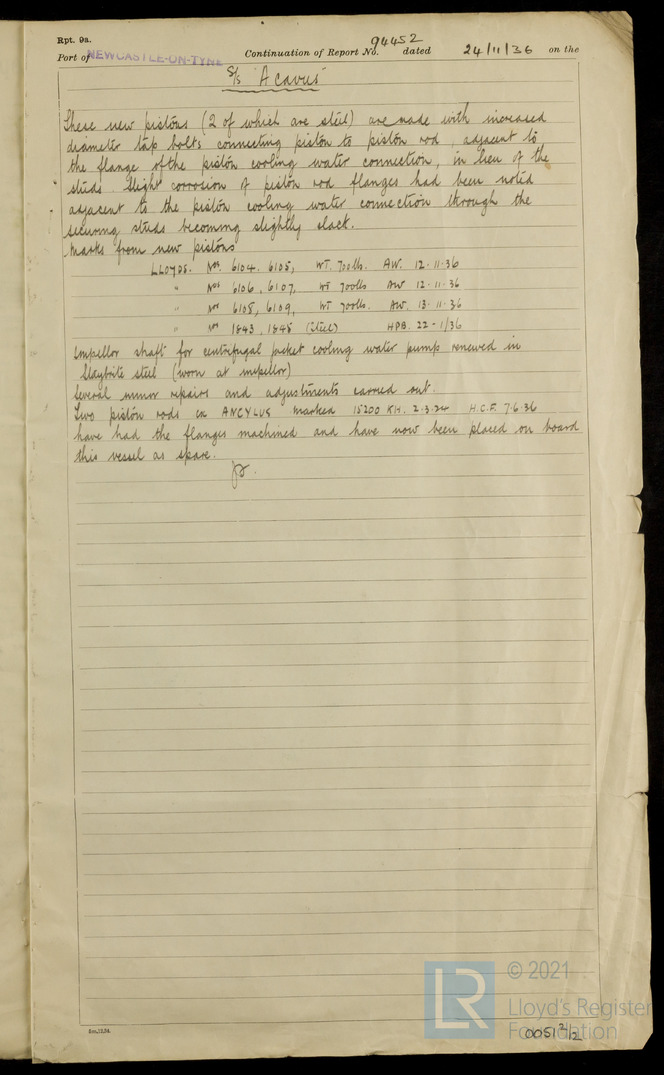 Rpt. 9a.
Port of NEWCASTLE-ON-TYNE Continuation of Report No. 94452 dated 24/11/36 on the
S/S "Acavus"
These new pistons (2 of which are steel) are made with increased
diameter tap bolts connecting piston to piston rod, adjacent to
the flange of the piston cooling water connection, in lieu of the
studs. Slight corrosion of piston rod flanges had been noted
adjacent to the piston cooling water connection through the
securing studs becoming slightly slack.
Marks from new pistons
LLOYDS. Nos. 6104. 6105, WT. 700lbs. AW. 12.11.36
" Nos 6106, 6107, WT 700lbs AW 12.11.36
" Nos 6108, 6109, WT 700lbs. AW. 13.11.36
" Nos 1843, 1848 (Steel) HPB. 22-1/36
Impellor shaft for centrifugal jacket cooling water pump renewed in
Staybrite steel (worn at impellor)
Several minor repairs and adjustments carried out.
Two piston rods ex ANCYLUS marked 15200 KH. 2.3.24 H.C.F. 7.6.36
have had the flanges machined and have now been placed on board
this vessel as spare.
© 2021
LR
Lloyd's Register
Foundation
0051 2/2